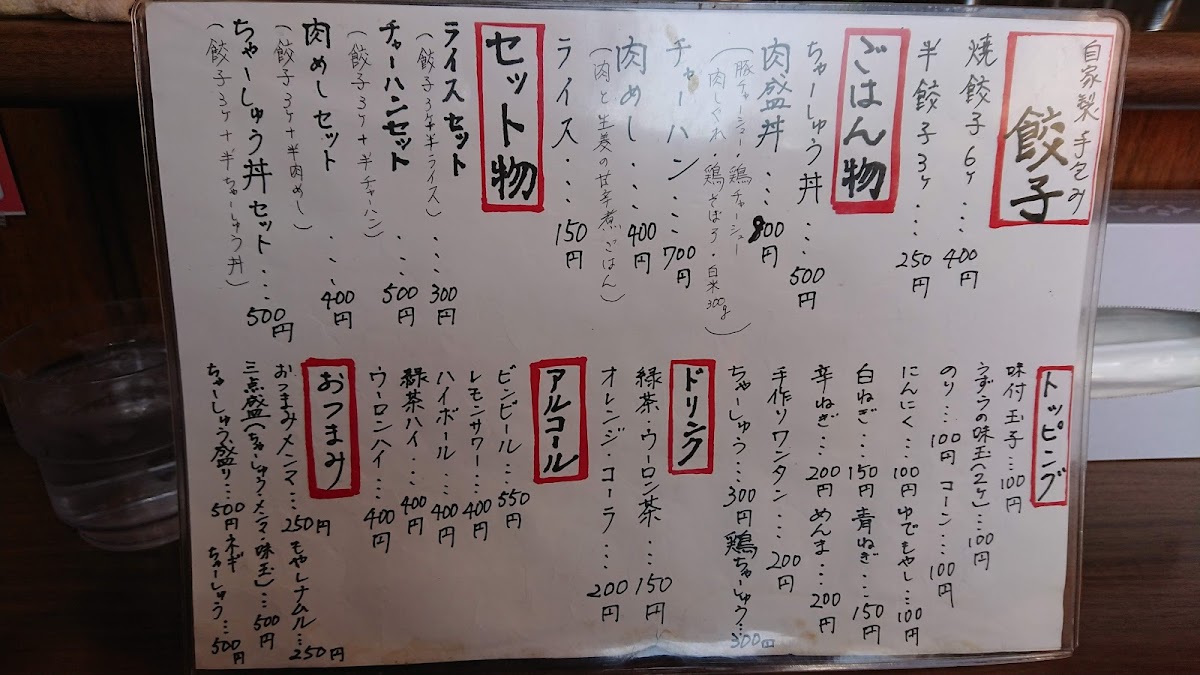 自家製 手包み
餃子
焼餃子 6ヶ ・・・400円
半餃子 3ヶ ・・・250円
ごはん物
ちゃーしゅう丼 ・・・500円
肉盛丼 ・・・800円
(豚チャーシュー・鶏チャーシュー
肉しぐれ・鶏そぼろ・白米300g)
チャーハン・・・700円
肉めし・・・400円
(肉と生姜の甘辛煮ごはん)
ライス・・・150円
セット物
ライスセット ・・・300円
(餃子3ヶ+半ライス)
チャーハンセット ・・・500円
(餃子3ヶ+半チャーハン)
肉めしセット ・・・400円
(餃子3ヶ+半肉めし)
ちゃーしゅう丼セット・・・500円
(餃子3ヶ+半ちゃーしゅう丼)
トッピング
味付玉子・・・100円
うずらの味玉(2ヶ)・・・100円
のり・・・100円 コーン・・・100円
にんにく・・・100円 ゆでもやし・・・100円
白ねぎ・・・150円 青ねぎ・・・150円
辛ねぎ・・・200円 めんま・・・200円
手作りワンタン・・・200円
ちゃーしゅう・・・300円 鶏ちゃーしゅう・・・300円
ドリンク
緑茶・ウーロン茶・・・150円
オレンジ・コーラ・・・200円
アルコール
ビンビール・・・550円
レモンサワー・・・400円
ハイボール・・・400円
緑茶ハイ・・・400円
ウーロンハイ・・・400円
おつまみ
おつまみメンマ・・・250円 もやしナムル・・・250円
三点盛(ちゃーしゅう・メンマ・味玉)・・・500円
ちゃーしゅう盛り・・・500円 ネギちゃーしゅう・・・500円